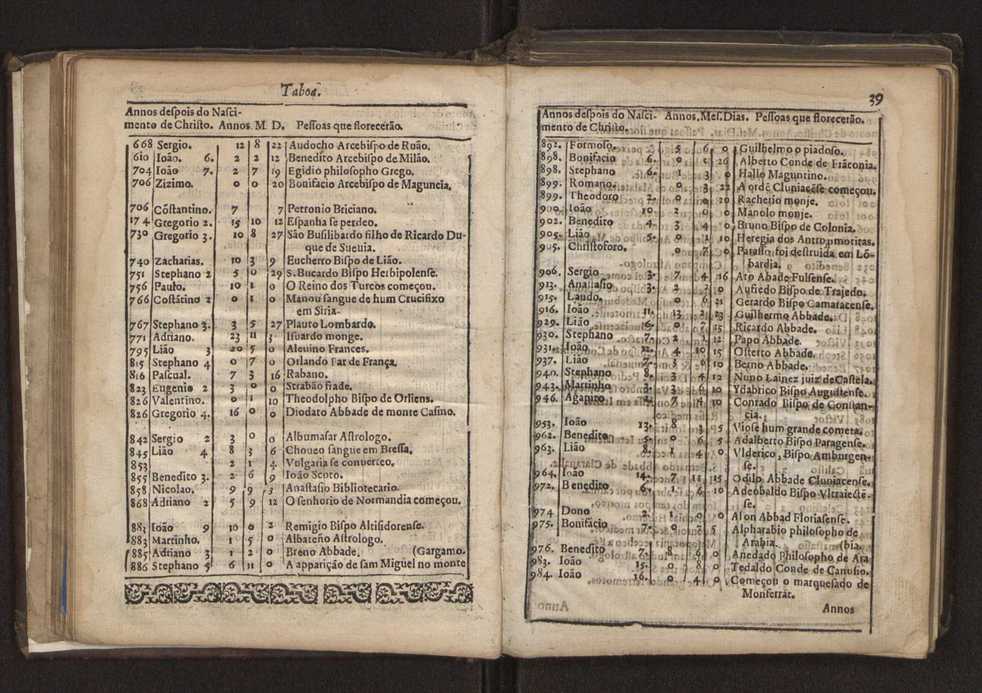 Taboa.
Annos despois do Nasci-
mento de Christo. Annos M D. Pessoas que florecerão.
668 Sergio. 12 8 22 Audocho Arcebispo de Ruão.
610 Ioão. 6. 2 2 12 Benedito Arcebispo de Milão.
704 Ioão 7. 2 7 19 Egidio philosopho Grego.
706 Zizimo. 0 0 20 Bonifacio Arcebispo de Maguncia,
706 Cõstantino. 7 7 Petronio Briciano.
174 Gregorio 2. 15 10 12 Espanha se perdeo.
730 Gregorio 3. 10 8 27 São Busilibardo filho de Ricardo Du-
que de Sueuia.
740 Zacharias. 10 3 9 Eucherro Bispo de Lião.
751 Stephano 2 5 0 29 S. Bucardo Bispo Herbipolense.
756 Paulo. 10 1 0 O Reino dos Turcos começou.
766 Costãtino 2 0 1 0 Manou sangue de hum Crucifixo
em Siria.
767 Stephano 3. 3 5 27 Plauto Lombardo.
771 Adriano. 23 11 3 Isuardo monge.
795 Lião 3 20 5 0 Aleuino Frances.
815 Stephano 4 0 7 0 Orlando Par de França.
816 Pascual. 7 3 16 Rabano.
823 Eugenio 2 3 0 0 Strabão frade.
826 Valentino. 0 1 10 Theodolpho Bispo de Orliens.
826 Gregorio 4. 16 0 0 Diodato Abbade de monte Casino.
842 Sergio 2 3 0 0 Albumasar Astrologo.
845 Lião 4 8 3 6 Choueo sangue em Bressa,
853 2 1 4 Vulgaria se conuerteo.
855 Benedito 3. 2 6 9 Ioão Scoto.
858 Nicolao. 9 9 3 Anastasio Bibliotecario.
868 Adriano 2 5 9 12 O senhorio de Normandia começou.
881 Ioão 9 10 0 2 Remigio Bispo Altisidorense.
883 Martinho. 1 5 0 Albateño Astrologo.
885 Adriano 3 1 2 0 Breno Abbade. (Gargamo.
886 Stephano 5 6 11 0 A apparição de sam Miguel no monte
39
Annos despois do Nasci- Annos, Mes. Dias. Pessoas que florecerão.
mento de Christo.
892. Formoso. 5 6 0 Guilhelmo o piadoso.
898. Bonifacio 6. 0 26 Alberto Conde de Frãconia.
898. Stephano 6. 1 3 0 Hallo Maguntino.
899. Romano. 0 3 22 A ordẽ Cluniacẽse começou.
899. Theodoro 2. 0 20 Racherio monje.
900. Ioão 10 2 0 Manolo monje.
902. Benedito 4. 3 4 0 Bruno Bispo de Colonia.
905. Lião 5. 0 1 10 Heregia dos Antropmoritas.
905. Christoforo. 0 7 0 Parasso, foi destruida em Lõ-
bardia.
906. Sergio 3. 7 4 16 Ato Abade Fulsense.
913. Anastasio 3. 2 0 Aufiedo Bispo de Trajedo.
915. Laudo. 0 6 21 Gerardo Bispo Camaracense,
916. Ioão 11. 13 3 23 Guilhermo Abbade.
929. Lião 6. 0 7 15 Ricardo Abbade.
930. Stephano 7. 2 1 12 Papo Abbade.
931. Ioão 4 10 15 Osterto Abbade.
937. Lião 7. 3 6 10 Berno Abbade.
940. Stephano 8. 3 4 12 Nuno Lainez juiz de Castela.
943. Martinho 3. 3 6 10 Ydabrico Bispo Augustense.
946. Agapito 7 10 Conrado Bispo de Constan-
cia.
953. Ioão 13. 8 5 Viose hum grande cometa.
962. Benedito 5. 0 6 5 Adalberto Bispo Paragense.
963. Lião 8. 4 Vlderico, Bispo Amburgen-
se.
964. Ioão 14. 7 11 15 Odilo Abbade Cluniacense.
972. Benedito 6. 6 10 Adeobaldo Bispo Vltraiectẽ-
se.
974 Dono 2. 0 0 Ason Abbad Floriasense.
975. Bonifacio 7. 0 5 Alpharabio philosopho de
Arabia. (bia.
976. Benedito 7. 8 6 Anedado Philosopho de Ara
983. Ioão 15. 0 8 0 Tedaldo Conde de Canusio.
984. Ioão 16. 0 4 0 Começou o marquesado de
Monferrat.
Annos